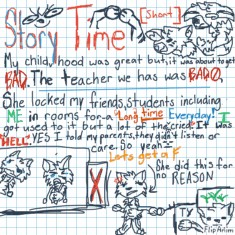 Story Time
[Short]
My child, hood was great but, it was about to get
BAD. The teacher we has was BAD.
She locked my friends, students including
ME in rooms for a "Long time Everyday! I
got used to it but a lot of the cried. It was
"HELL". YES I told my parents, they didn't listen or
care. So yeah-
Lots get a F
She did this for
no REASON
X
TY
FlipAnim